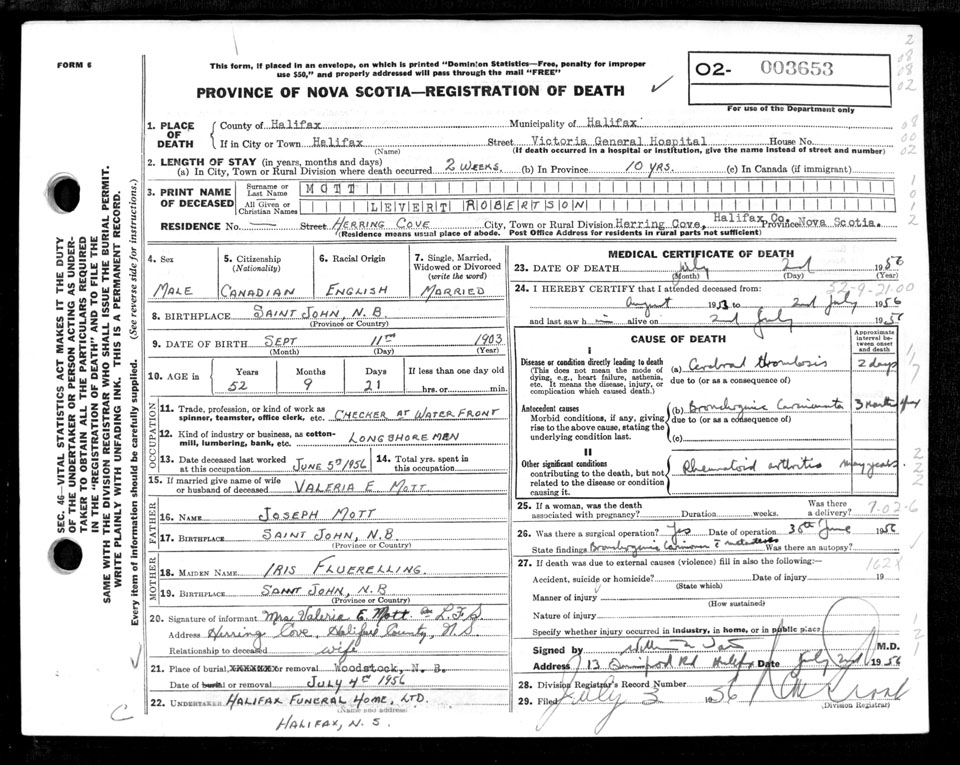 FORM 6
This form, if placed in an envelope, on which is printed "Dominion Statistics—Free, penalty for improper
use $50," and properly addressed will pass through the mail "FREE"
PROVINCE OF NOVA SCOTIA—REGISTRATION OF DEATH
02- 003653
For use of the Department only
SEC. 46—VITAL STATISTICS ACT MAKES IT THE DUTY
OF THE UNDERTAKER OR PERSON ACTING AS UNDER-
TAKER TO OBTAIN ALL THE PARTICULARS REQUIRED
IN THE "REGISTRATION OF DEATH" AND TO FILE THE
SAME WITH THE DIVISION REGISTRAR WHO SHALL ISSUE THE BURIAL PERMIT.
WRITE PLAINLY WITH UNFADING INK. THIS IS A PERMANENT RECORD.
Every item of information should be carefully supplied. (See reverse side for instructions.)
1. PLACE OF DEATH
County of Halifax Municipality of Halifax
If in City or Town Halifax Street Victoria General Hospital House No.
(Name) (If death occurred in a hospital or institution, give the name instead of street and number)
2. LENGTH OF STAY (in years, months and days)
(a) In City, Town or Rural Division where death occurred 2 WEEKS, (b) In Province 10 YRS. (c) In Canada (if immigrant)
3. PRINT NAME OF DECEASED
Surname or Last Name MOTT
All Given or Christian Names LEVERT ROBERTSON
RESIDENCE No. — Street HERRING COVE City, Town or Rural Division Herring Cove, Halifax Co. Province Nova Scotia.
(Residence means usual place of abode. Post Office Address for residents in rural parts not sufficient)
4. Sex
MALE
5. Citizenship (Nationality)
CANADIAN
6. Racial Origin
ENGLISH
7. Single, Married, Widowed or Divorced (write the word)
MARRIED
8. BIRTHPLACE SAINT JOHN, N.B.
(Province or Country)
9. DATE OF BIRTH SEPT 11TH 1903
(Month) (Day) (Year)
10. AGE in Years Months Days If less than one day old
52 9 21 hrs. or min.
OCCUPATION
11. Trade, profession, or kind of work as
spinner, teamster, office clerk, etc. CHECKER AT WATER FRONT
12. Kind of industry or business, as cotton-
mill, lumbering, bank, etc. LONGSHOREMEN
13. Date deceased last worked
at this occupation JUNE 5TH 1956
14. Total yrs. spent in
this occupation
15. If married give name of wife
or husband of deceased VALERIA E. MOTT
FATHER
16. NAME JOSEPH MOTT
17. BIRTHPLACE SAINT JOHN, N.B.
(Province or Country)
MOTHER
18. MAIDEN NAME IRIS FLUERELLING.
19. BIRTHPLACE SAINT JOHN, N.B
(Province or Country)
20. Signature of informant Mrs. Valeria E. Mott Per L.F.S.
Address Herring Cove, Halifax County, N.S
Relationship to deceased wife
21. Place of burial, or removal Woodstock, N. B.
Date of burial or removal JULY 4TH 1956
22. UNDERTAKER HALIFAX FUNERAL HOME, LTD.
(Name and address)
HALIFAX, N. S.
MEDICAL CERTIFICATE OF DEATH
23. DATE OF DEATH July 2nd 1956
(Month) (Day) (Year)
24. I HEREBY CERTIFY that I attended deceased from:
August 1953 to 2nd July 1956
and last saw h im alive on 2nd July 1956
CAUSE OF DEATH
Approximate interval between onset and death
I
Disease or condition directly leading to death
(This does not mean the mode of
dying, e.g., heart failure, asthenia,
etc. It means the disease, injury, or
complication which caused death.)
(a) Cerebral thrombosis 2 days
due to (or as a consequence of)
Antecedent causes
Morbid conditions, if any, giving
rise to the above cause, stating the
underlying condition last.
(b) Bronchogenic Carcinomata 3 months
due to (or as a consequence of)
(c)
II
Other significant conditions
contributing to the death, but not
related to the disease or condition
causing it.
Rheumatoid arthritis many years.
25. If a woman, was the death
associated with pregnancy? Duration weeks. Was there
a delivery?
26. Was there surgical operation? Yes Date of operation 30th June 1956
State findings Bronchogenic Carcinoma Was there an autopsy?
27. If death was due to external causes (violence) fill in also the following:
162X
Accident, suicide or homicide? Date of injury 19
(State which)
Manner of injury
(How sustained)
Nature of injury
Specify whether injury occurred in industry, in home, or in public place
Signed by M.D.
Address Halifax Date July 2nd 1956
28. Division Registrar's Record Number
29. Filed July 3 1956
(Division Registrar)